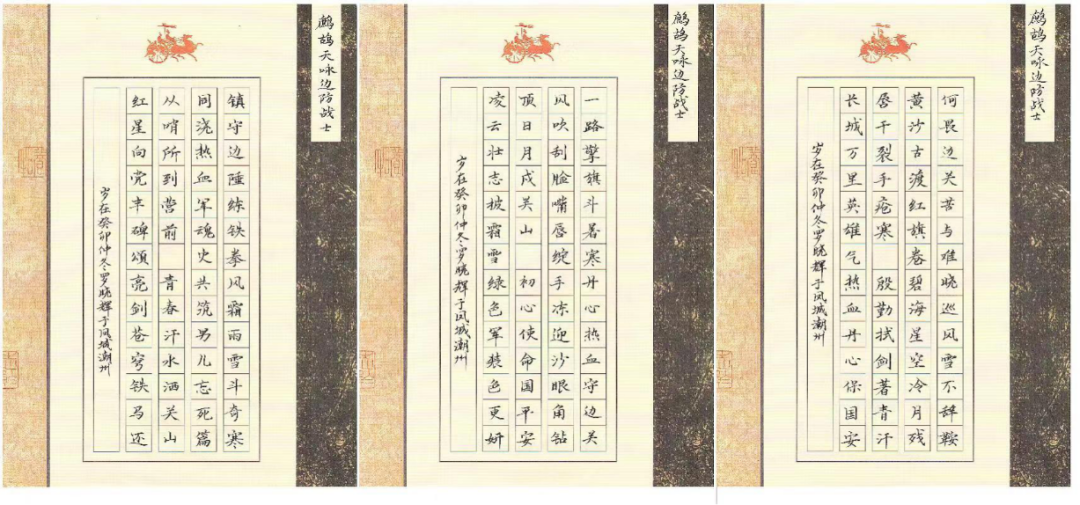 鹧鸪天咏边防战士
镇守边陲练铁拳风霜雨雪斗奇寒
同浇热血军魂史共筑男儿忘死篇
从哨所到营前 青春汗水洒关山
红星向党丰碑颂亮剑苍穹铁马还
岁在癸卯仲冬罗晓辉于凤城潮州
鹧鸪天咏边防战士
一路擎旗斗暑寒丹心热血守边关
风吹刮脸嘴唇绽手冻迎沙眼角钻
顶日月戍关山 初心使命国平安
凌云壮志披霜雪绿色军装色更妍
岁在癸卯仲冬罗晓辉于凤城潮州
鹧鸪天咏边防战士
何畏边关苦与难晓巡风雪不辞鞍
黄沙古渡红旗卷碧海星空冷月残
唇干裂手疮寒 殷勤拭剑著青汗
长城万里英雄气热血丹心保国安
岁在癸卯仲冬罗晓辉于凤城潮州